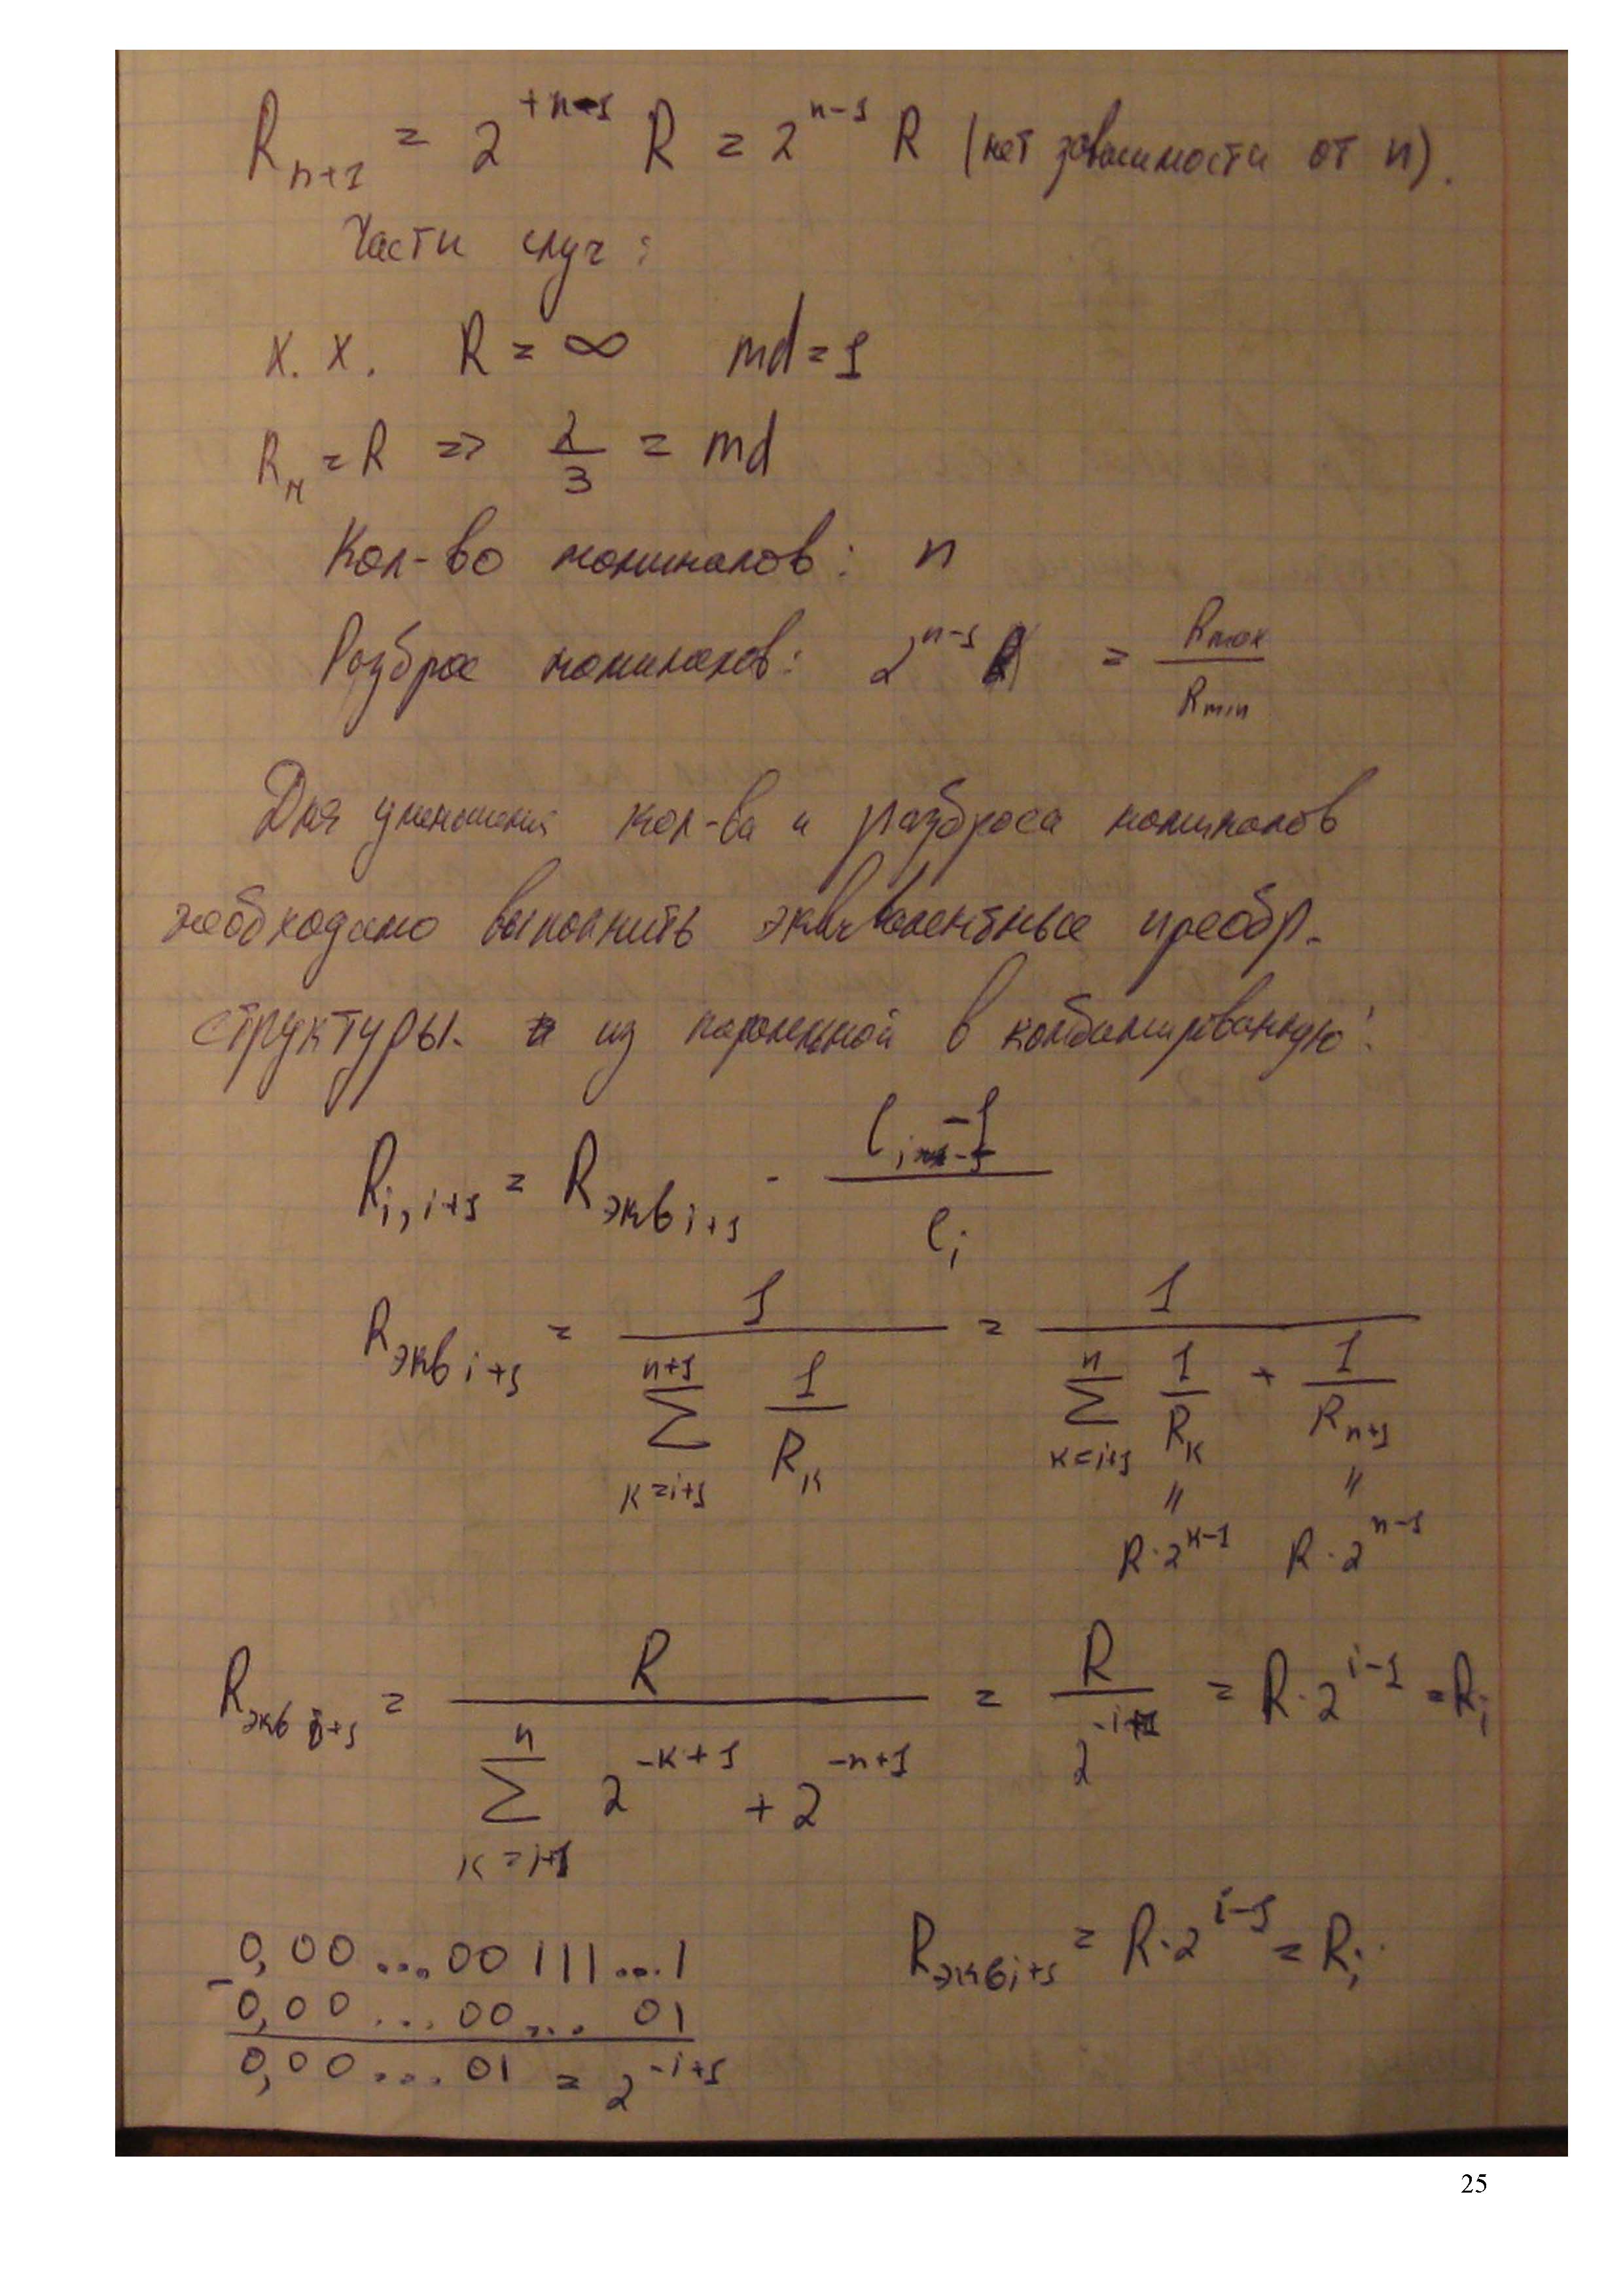 R_{n+1} = 2^{+n-1} R = 2^{n-1} R (нет зависимости от n).
Части случ:
х. х. R = ∞ md = 1
R_н = R => 2/3 = md
Кол-во номиналов: n
Разброс номиналов: 2^{n-1} = R_{max}/R_{min}
Для уменьшения кол-ва и разброса номиналов
необходимо выполнить эквивалентные преобр.
структуры из паралельной в комбинированную:
R_{i,i+1} = R_{экв i+1} · l_{i-1}/l_i
R_{экв i+1} = 1/(∑_{k=i+1}^{n+1} 1/R_k) = 1/(∑_{k=i+1}^{n} 1/R_k + 1/R_{n+1})
" "
R·2^{k-1} R·2^{n-1}
R_{экв i+1} = R/(∑_{k=i+1}^{n} 2^{-k+1} + 2^{-n+1}) = R/2^{-i+1} = R·2^{i-1} = R_i
0,00...00111...1
R_{экв i+1} = R·2^{i-1} = R_i
- 0,00...00... 01
0,00...01 = 2^{-i+1}
25